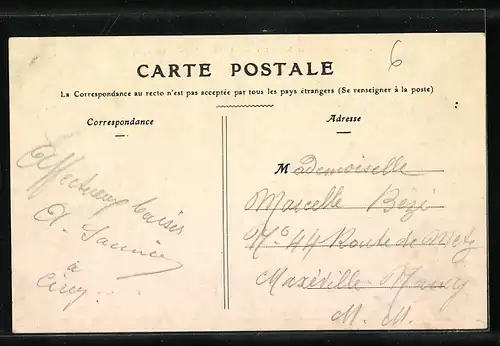 6
CARTE POSTALE
La Correspondance au recto n'est pas acceptée par tous les pays étrangers (Se renseigner à la poste)
Correspondance
Affectueux baisers
à
Cirey
Adresse
Mademoiselle
Marcelle Bézé
N° 44 Route de Metz
Maxéville-Nancy
M. M.